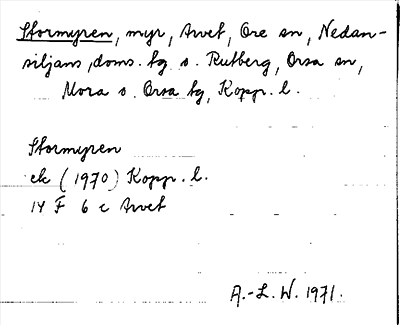 Stormyren, myr, Arvet, Ore sn, Nedan-
siljans doms. tg o. Rutberg, Orsa sn,
Mora o. Orsa tg, Kopp. l.
Stormyren
ek (1970) Kopp. l.
14 F 6 c Arvet
A.-L. W. 1971.